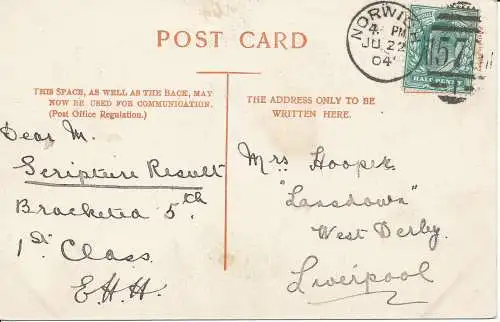 POST CARD
NORWICH
4 PM
JU 22
04
575
HALF PENNY
THIS SPACE, AS WELL AS THE BACK, MAY
NOW BE USED FOR COMMUNICATION.
(Post Office Regulation.)
THE ADDRESS ONLY TO BE
WRITTEN HERE.
Dear M.
Scripture Result
Bracketed 5th
1st Class.
E.H.H.
Mrs Hooper
"Lansdown"
West Derby
Liverpool